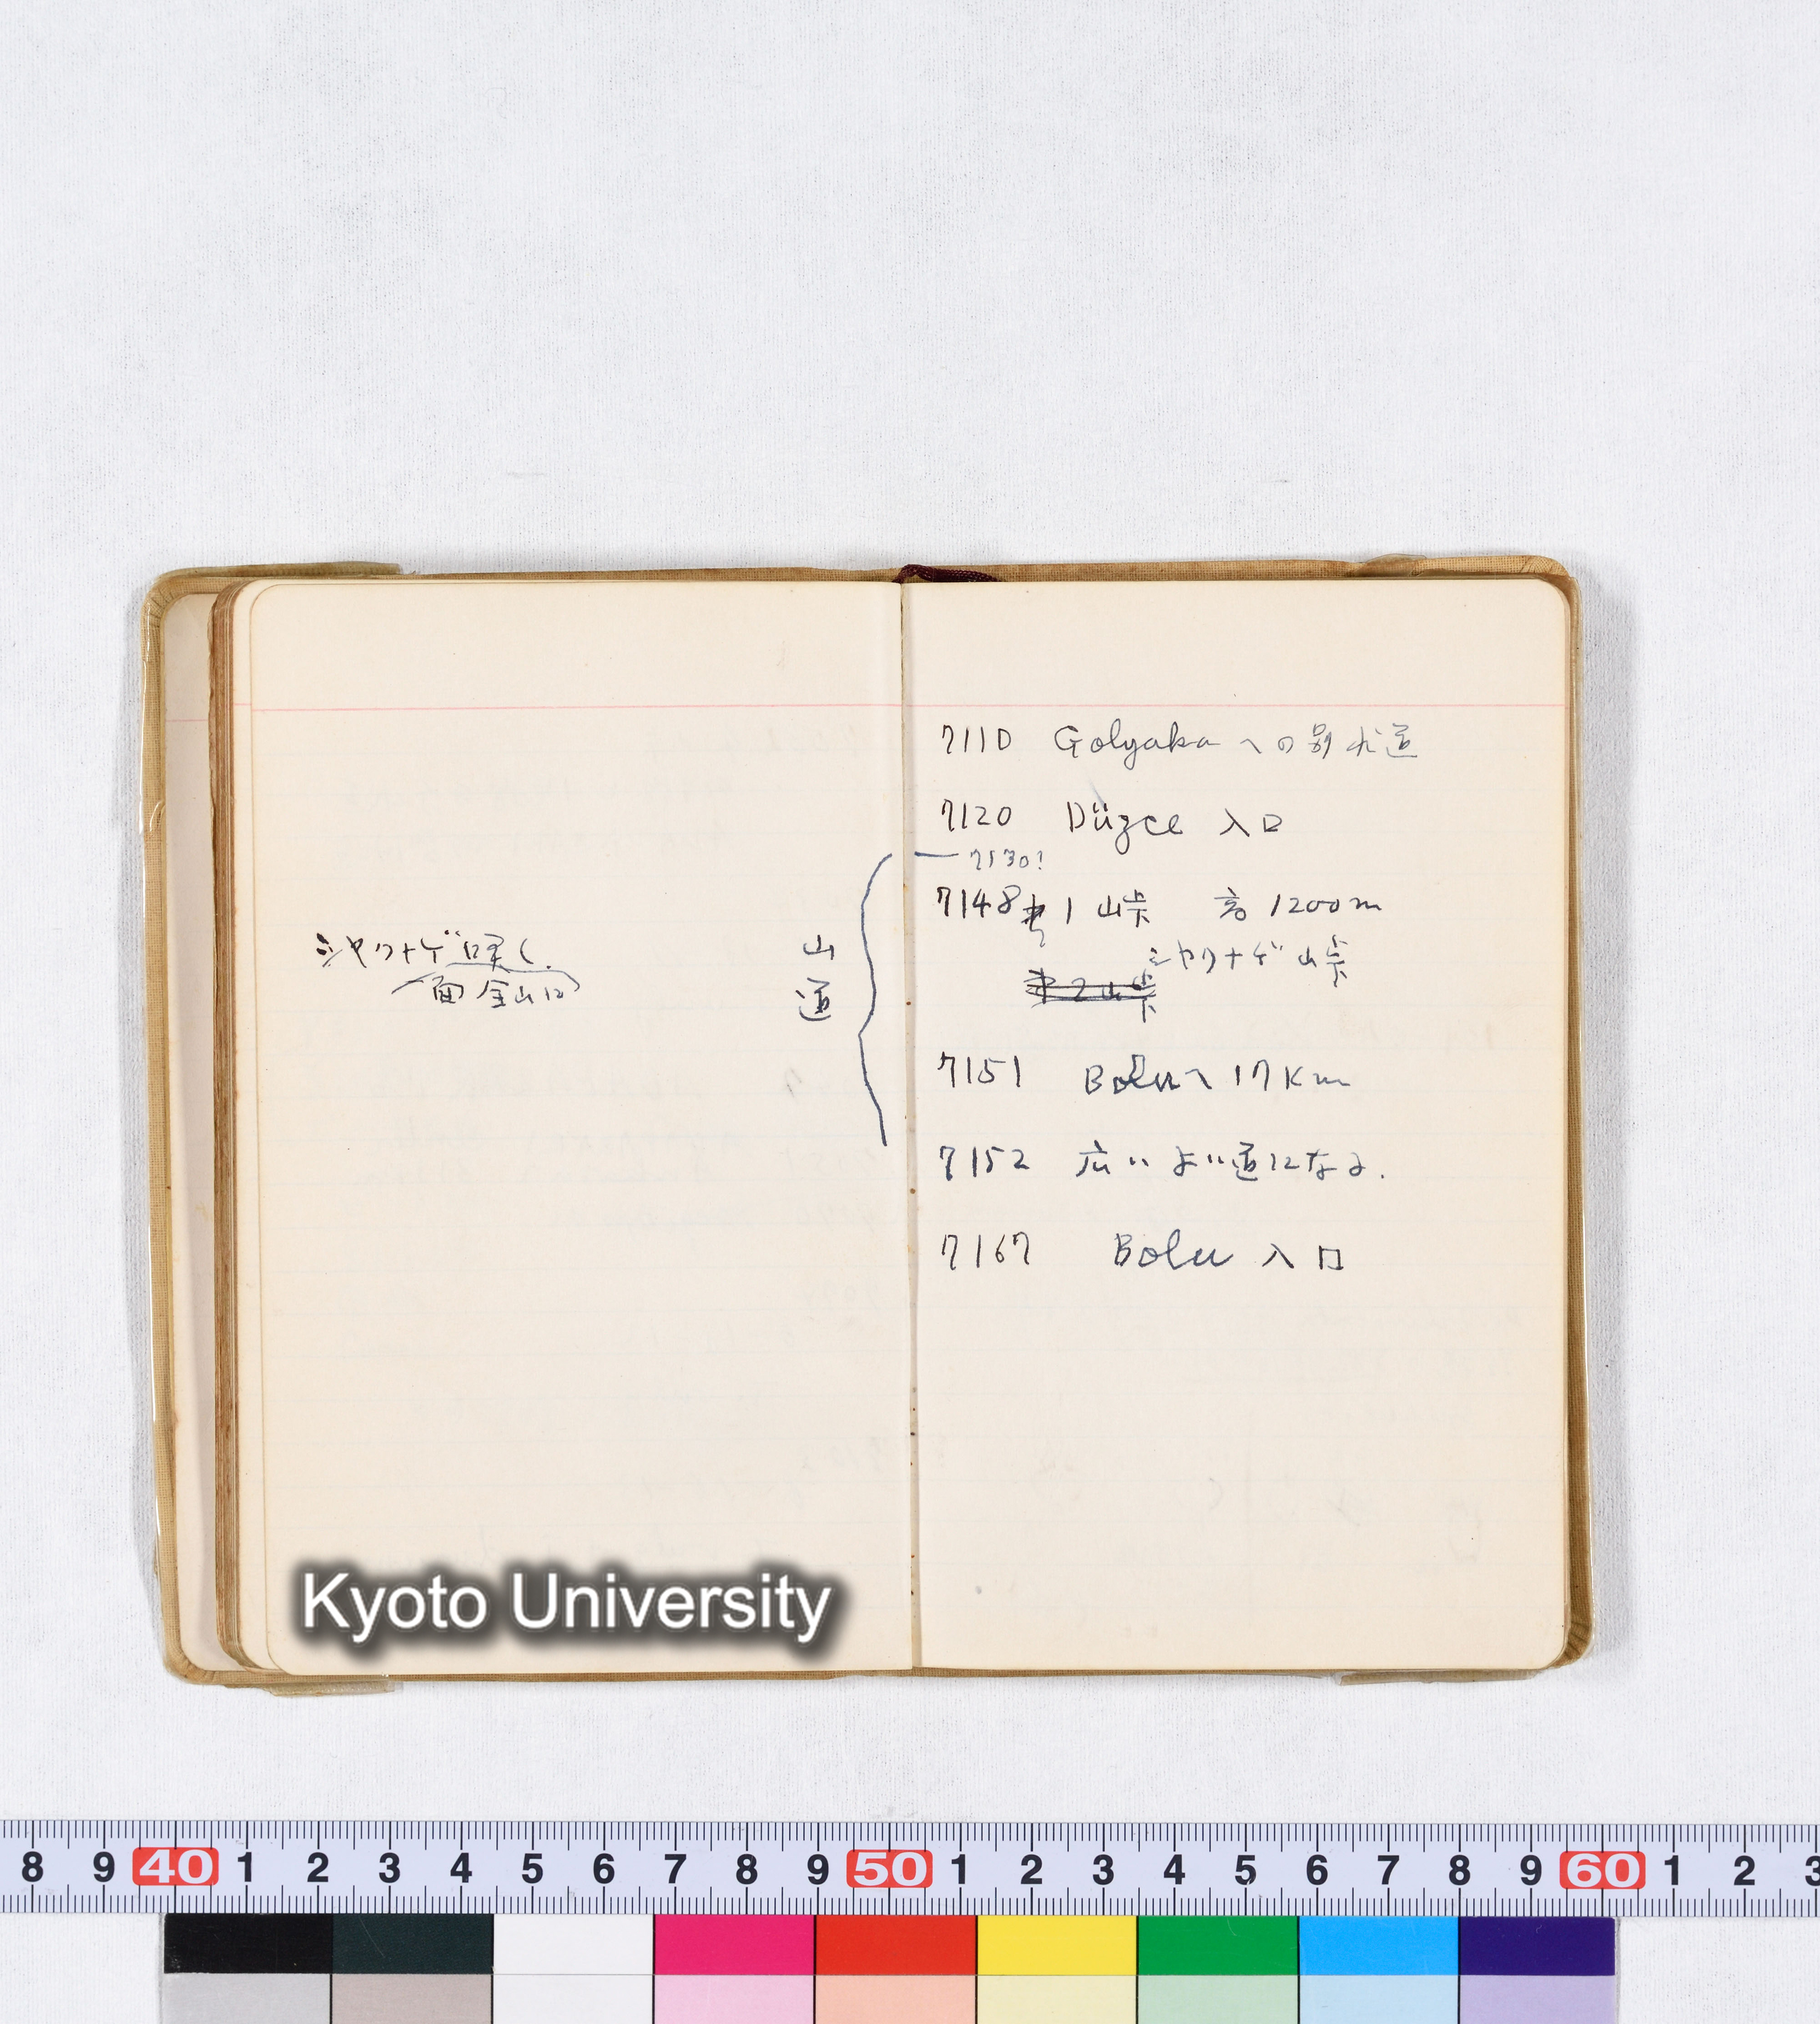 シャクナゲ咲く.
一面全山に
山
道
7110 Golyaka への別れ道
7120 Düzce 入口
7130?
7148 1 山峠 高 1200m
シャクナゲ山峠
2山峠
7151 Boluへ 17Km
7152 広いよい道になる.
7167 Bolu 入口
Kyoto University
8 9 40 1 2 3 4 5 6 7 8 9 50 1 2 3 4 5 6 7 8 9 60 1 2 3